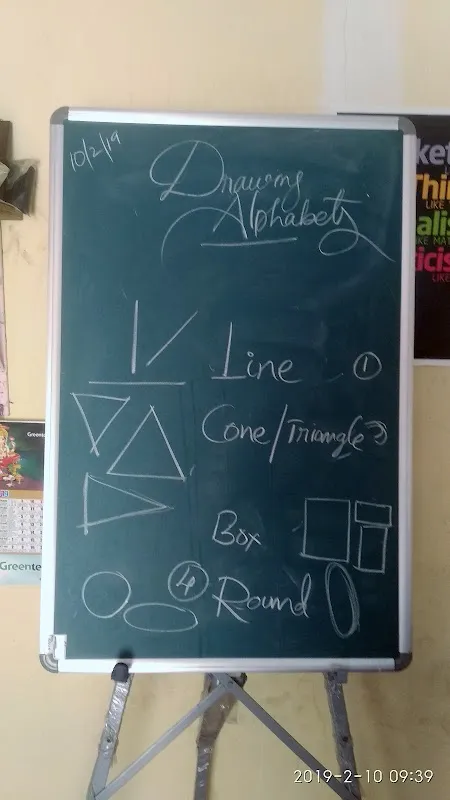 10/2/19
Drawing
Alphabets
Line ①
Cone/Triangle
Box
④ Round
ket
Thi
LIKE
alis
LIKE MAT
ticis
LIKE
Greente
Greente
2019-2-10 09:39